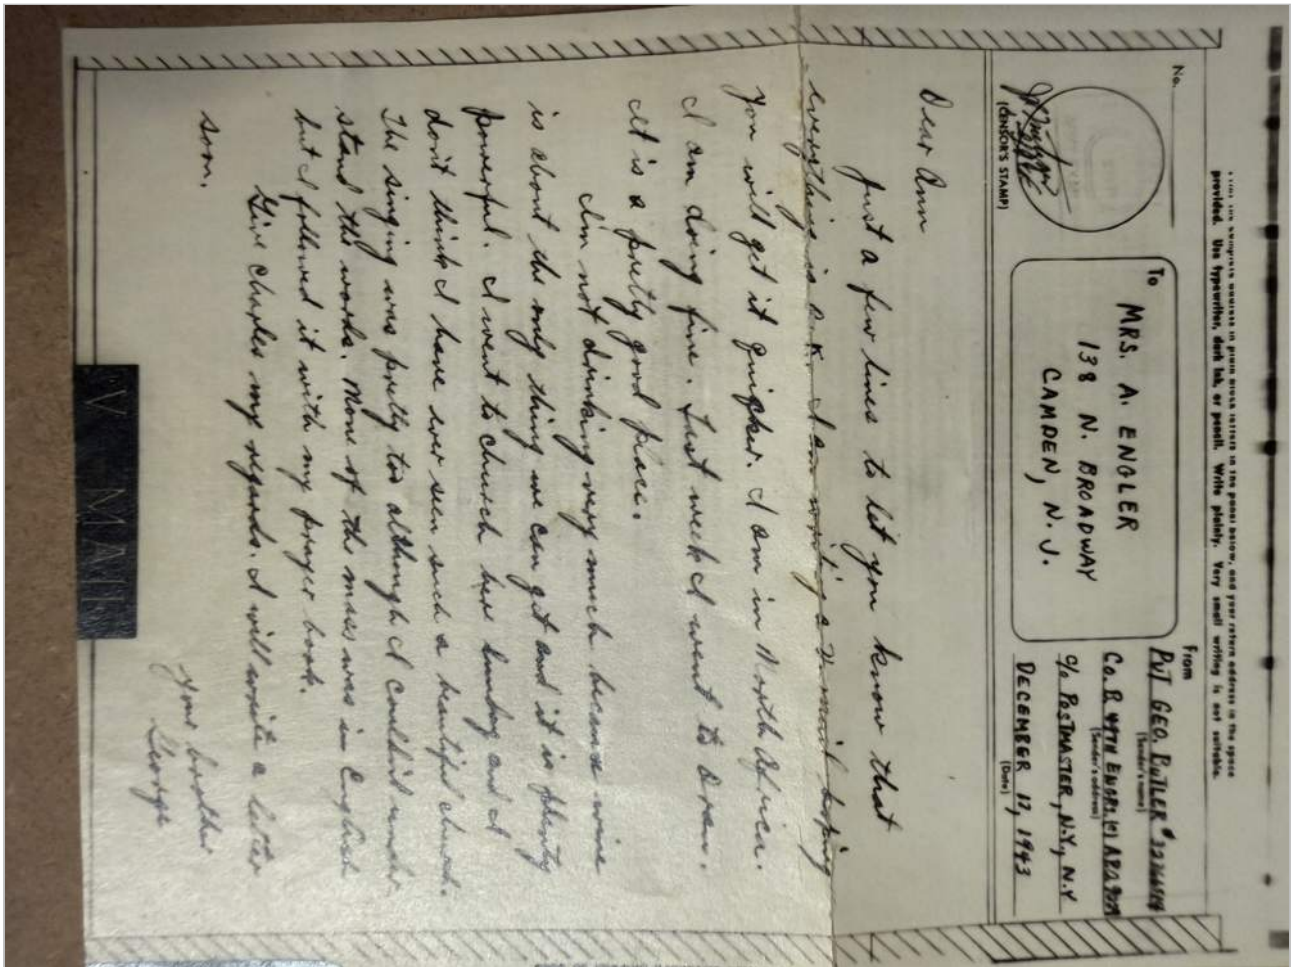 provided. Use typewriter, dark ink, or pencil. Write plainly. Very small writing is not suitable.
No.
(CENSOR'S STAMP)
To
MRS. A. ENGLER
138 N. BROADWAY
CAMDEN, N. J.
From
PVT GEO. BUTLER
(Sender's name)
Co. B 49TH ENGRS (C) APO
(Sender's address)
c/o POSTMASTER, N.Y., N.Y.
DECEMBER 17, 1943
(Date)
Dear Ann
Just a few lines to let you know that
everything is O.K. I am writing a V-mail hoping
you will get it quicker. I am in North Africa.
I am doing fine. Last week I went to Oran.
It is a pretty good place.
I'm not drinking very much because wine
is about the only thing we can get and it is plenty
powerful. I went to church here Sunday and I
don't think I have ever seen such a beautiful church.
The singing was pretty too although I couldn't under-
stand the words. None of the mass was in English
but I followed it with my prayer book.
Give Charles my regards. I will write a letter
soon.
Your brother
George
V MAIL